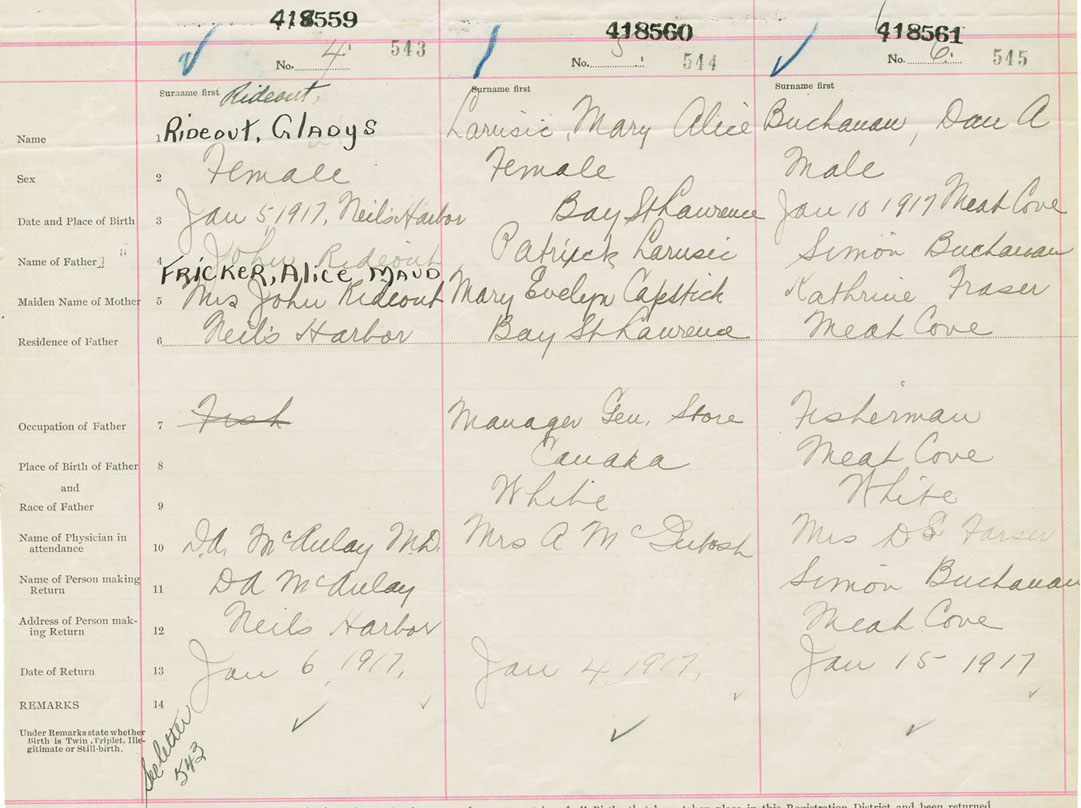 418559 418560 418561
No. 4 543 No. 5 544 No. 6 545
Surname first Rideout, Surname first Surname first
Name 1 Rideout, Gladys Larusic, Mary Alice Buchanan, Dan A
Sex 2 Female Female Male
Date and Place of Birth 3 Jan 5, 1917, Neil's Harbor Bay St Lawrence Jan 10 1917 Meat Cove
Name of Father 4 John Rideout Patrick Larusic Simon Buchanan
FRICKER, Alice MAUD
Maiden Name of Mother 5 Mrs John Rideout Mary Evelyn Capstick Kathrine Fraser
Residence of Father 6 Neils Harbor Bay St Lawrence Meat Cove
Occupation of Father 7 Fish Manager Gen. Store Fisherman
Place of Birth of Father 8 Canada Meat Cove
and
Race of Father 9 White White
Name of Physician in
attendance 10 D.A. McAulay M.D. Mrs A McIntosh Mrs D
Name of Person making
Return 11 DA McAulay Simon Buchanan
Address of Person mak-
ing Return 12 Neils Harbor Meat Cove
Date of Return 13 Jan 6, 1917, Jan 4, 1917, Jan 15 1917
REMARKS 14
Under Remarks state whether
Birth is Twin, Triplet, Ille-
gitimate or Still-birth.
See letter
543
all Births that have taken place in this Registration District and been returned